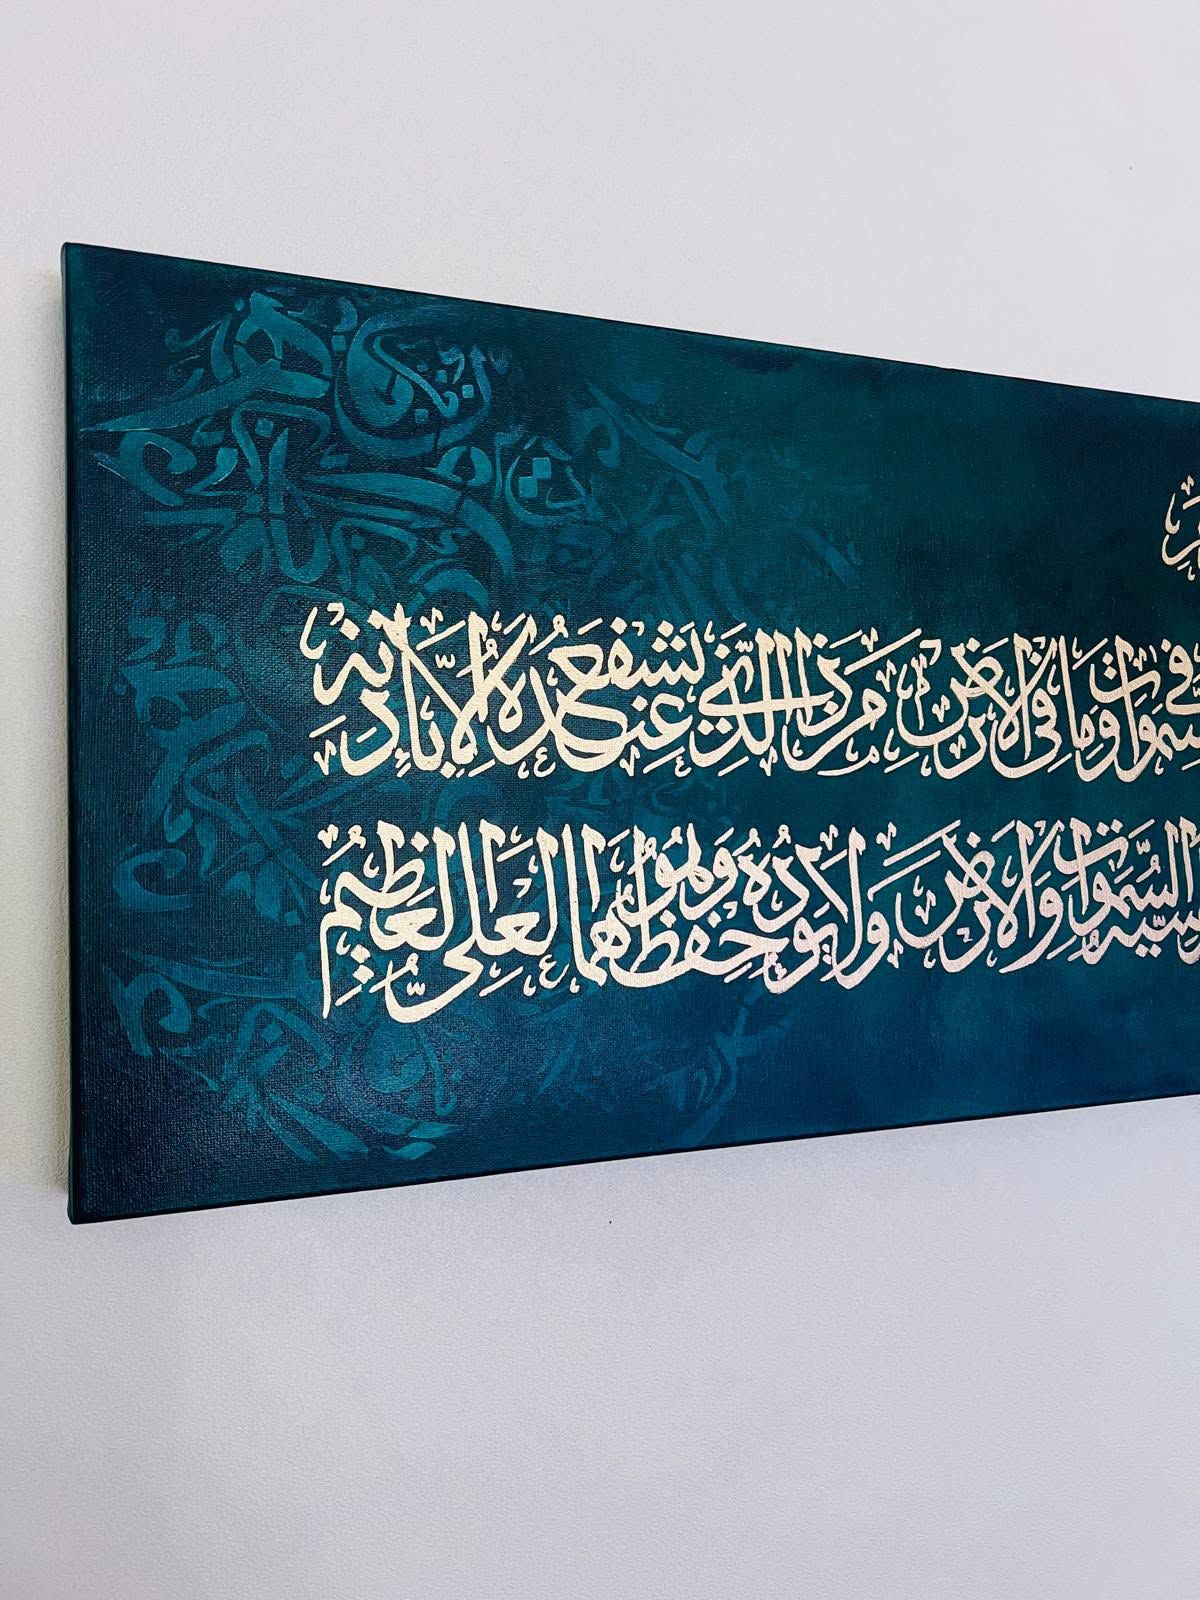 في السموات وما في الارض من ذا الذي يشفع عنده الا باذنه
السموات والارض ولا يؤده حفظهما وهو العلي العظيم